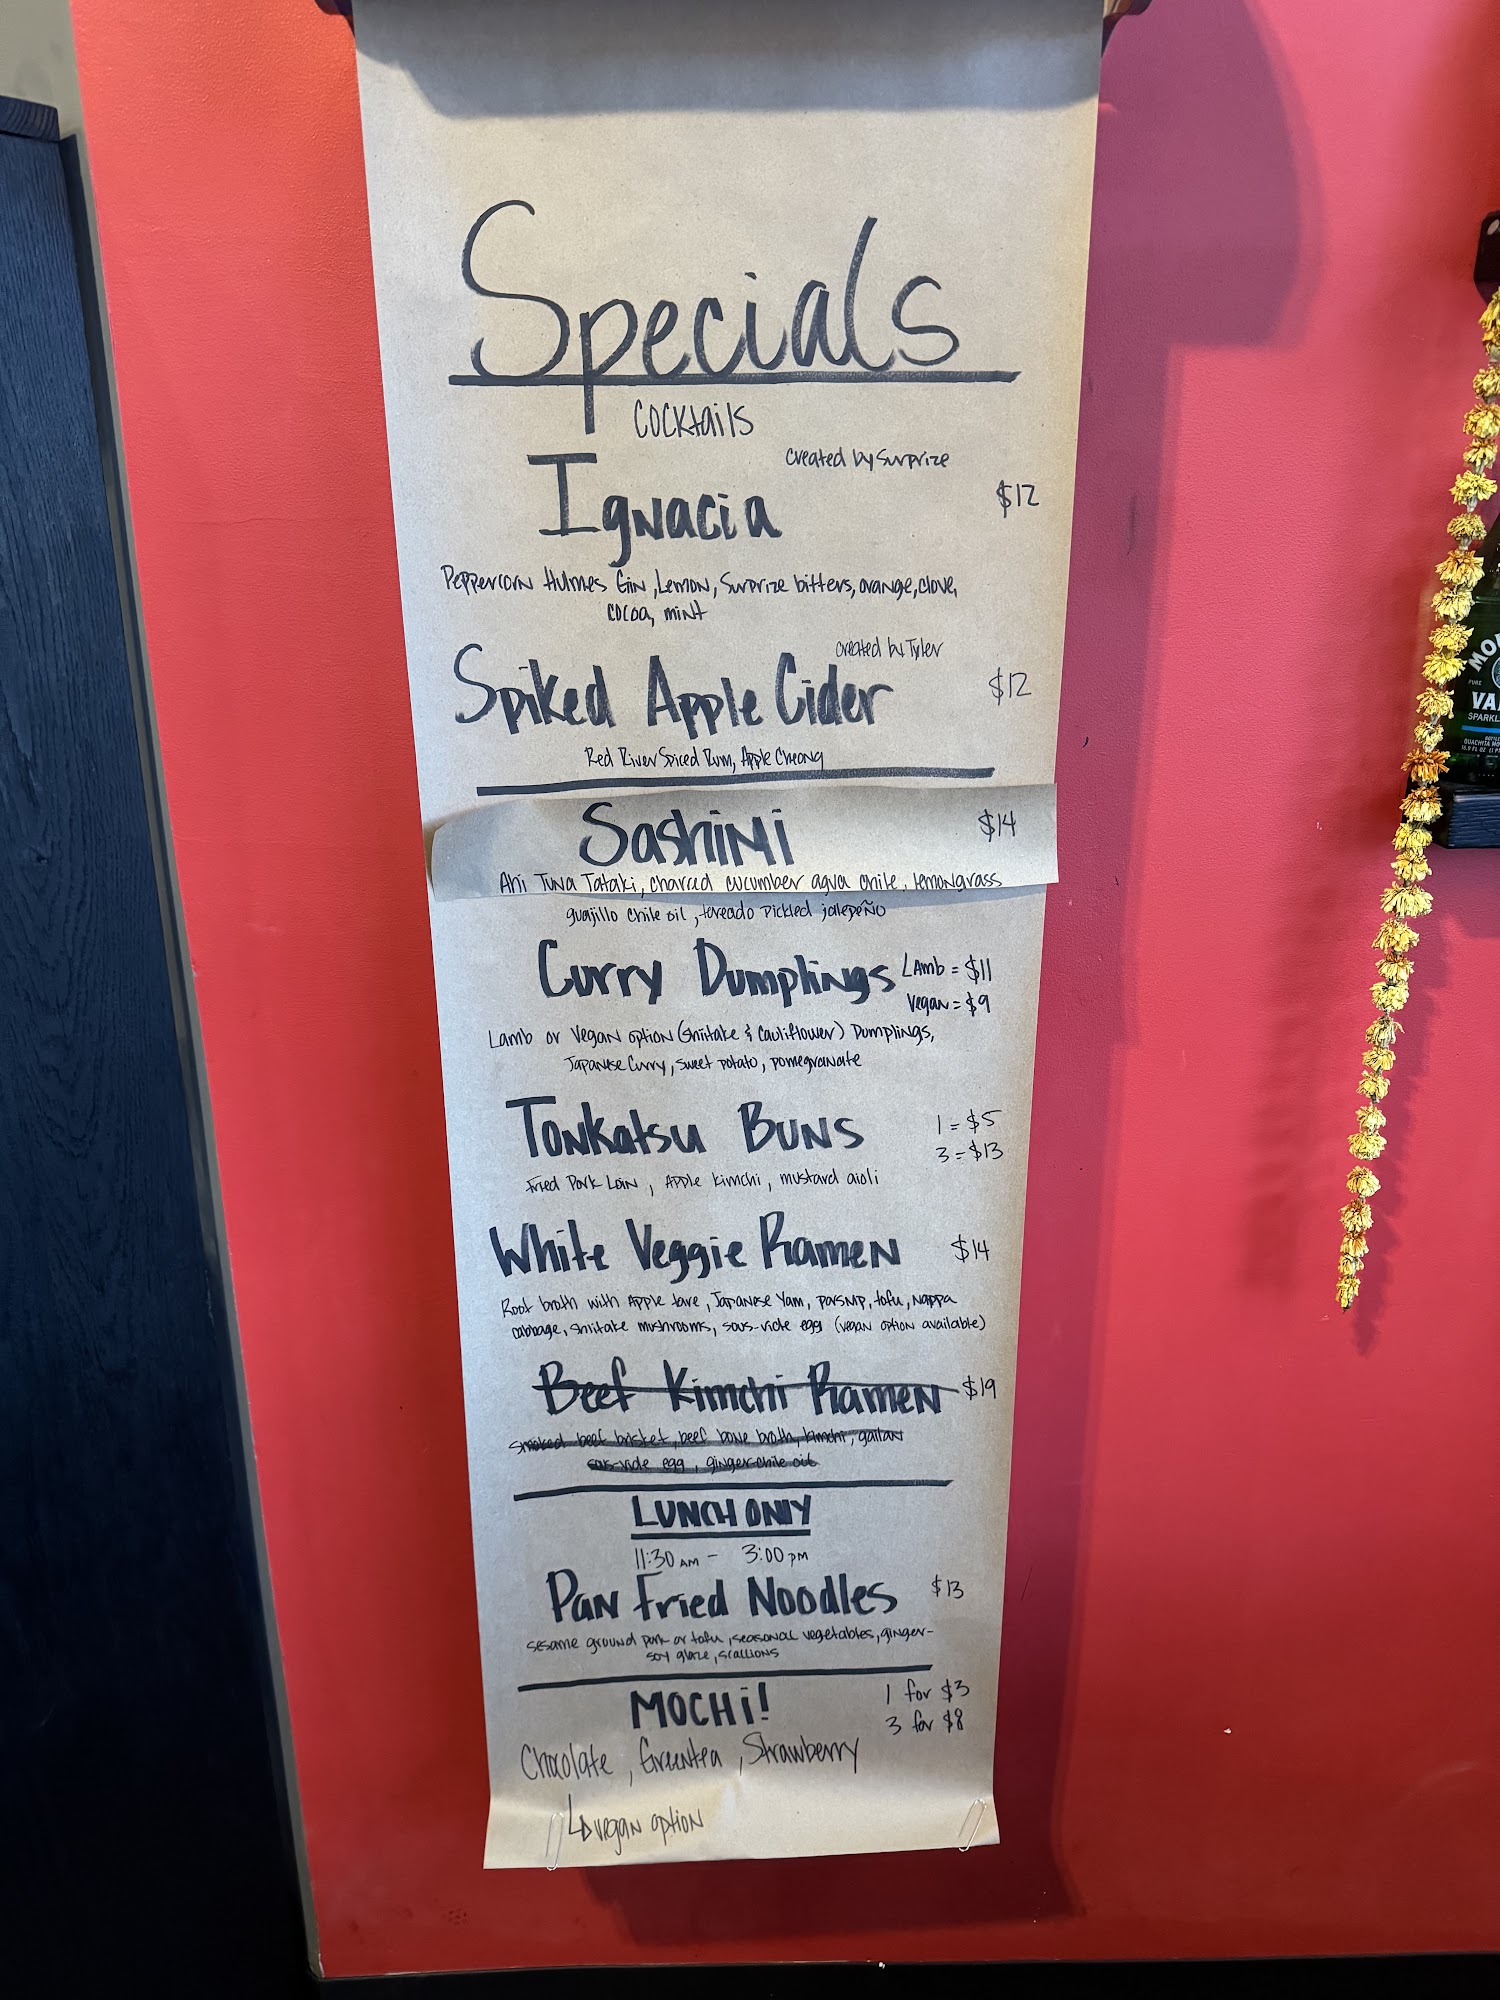 Specials
Cocktails
created by Surprize
Ignacia $12
Peppercorn Hulmes Gin, Lemon, Surprize bitters, orange, clove,
cocoa, mint
created by Tyler
Spiked Apple Cider $12
Red River Spiced Rum, Apple Cheong
Sashimi $14
Ahi Tuna Tataki, charred cucumber agua chile, lemongrass
guajillo chile oil, toreado pickled jalepeño
Curry Dumplings Lamb = $11
Vegan = $9
Lamb or Vegan option (Shiitake & Cauliflower) Dumplings,
Japanese Curry, sweet potato, pomegranate
Tonkatsu Buns 1 = $5
3 = $13
Fried Pork Loin, Apple Kimchi, mustard aioli
White Veggie Ramen $14
Root broth with Apple tare, Japanese Yam, parsnip, tofu, nappa
cabbage, shiitake mushrooms, sous-vide egg (vegan option available)
Beef Kimchi Ramen $19
smoked beef brisket, beef bone broth, kimchi, gailan
sous-vide egg, ginger-chile oil
LUNCH ONLY
11:30 AM - 3:00 PM
Pan Fried Noodles $13
sesame ground pork or tofu, seasonal vegetables, ginger-
soy glaze, scallions
MOCHI! 1 for $3
3 for $8
Chocolate, Greentea, Strawberry
↳ vegan option
MO
PURE
VA
SPARKL